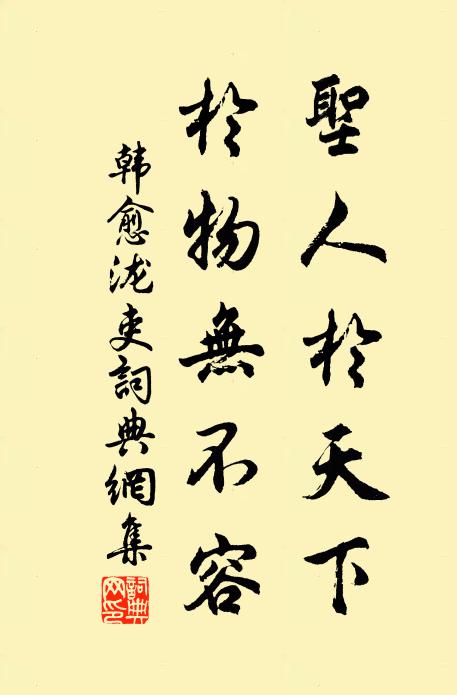 聖人於天下
於物無不容
韩愈泷吏詞典網集
詞典网印